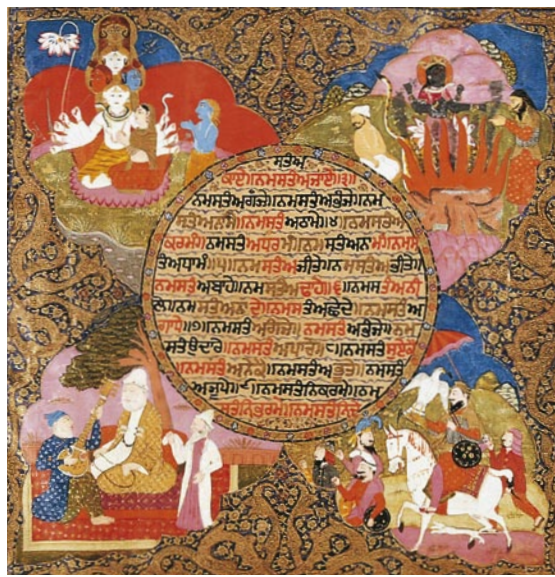 ਸਤੰਅ
ਕਾਏ॥ਨਮਸਤੰਅਜਾਏ॥੩॥
ਨਮਸਤੰਅਗੰਜੇ॥ਨਮਸਤੰਅਭੰਜੇ॥ਨਮ
ਸਤੰਅਨਾਮੇ॥ਨਮਸਤੰਅਠਾਮੇ॥੪॥ਨਮਸਤੰਅ
ਕਰਮੰ॥ਨਮਸਤੰਅਧਰਮੰ॥ਨਮਸਤੰਅਨਾਮੰ॥ਨਮਸ
ਤੰਅਧਾਮੰ॥੫॥ਨਮਸਤੰਅਜੀਤੇ॥ਨਮਸਤੰਅਭੀਤੇ॥
ਨਮਸਤੰਅਬਾਹੇ॥ਨਮਸਤੰਅਢਾਹੇ॥੬॥ਨਮਸਤੰਅਨੀ
ਲੇ॥ਨਮਸਤੰਅਨਾਦੇ॥ਨਮਸਤੰਅਛੇਦੇ॥ਨਮਸਤੰਅ
ਗਾਧੇ॥੭॥ਨਮਸਤੰਅਗੰਜੇ॥ਨਮਸਤੰਅਭੰਜੇ॥ਨਮ
ਸਤੰਉਦਾਰੇ॥ਨਮਸਤੰਅਪਾਰੇ॥੮॥ਨਮਸਤੰਸੁਏਕੈ
॥ਨਮਸਤੰਅਨੇਕੈ॥ਨਮਸਤੰਅਭੂਤੇ॥ਨਮਸਤੰ
ਅਜੂਪੇ॥੯॥ਨਮਸਤੰਨ੍ਰਿਕਰਮੇ॥ਨਮ
ਸਤੰਨ੍ਰਿਭਰਮੇ॥ਨਮਸਤੰਨ੍ਰਿਦੇ